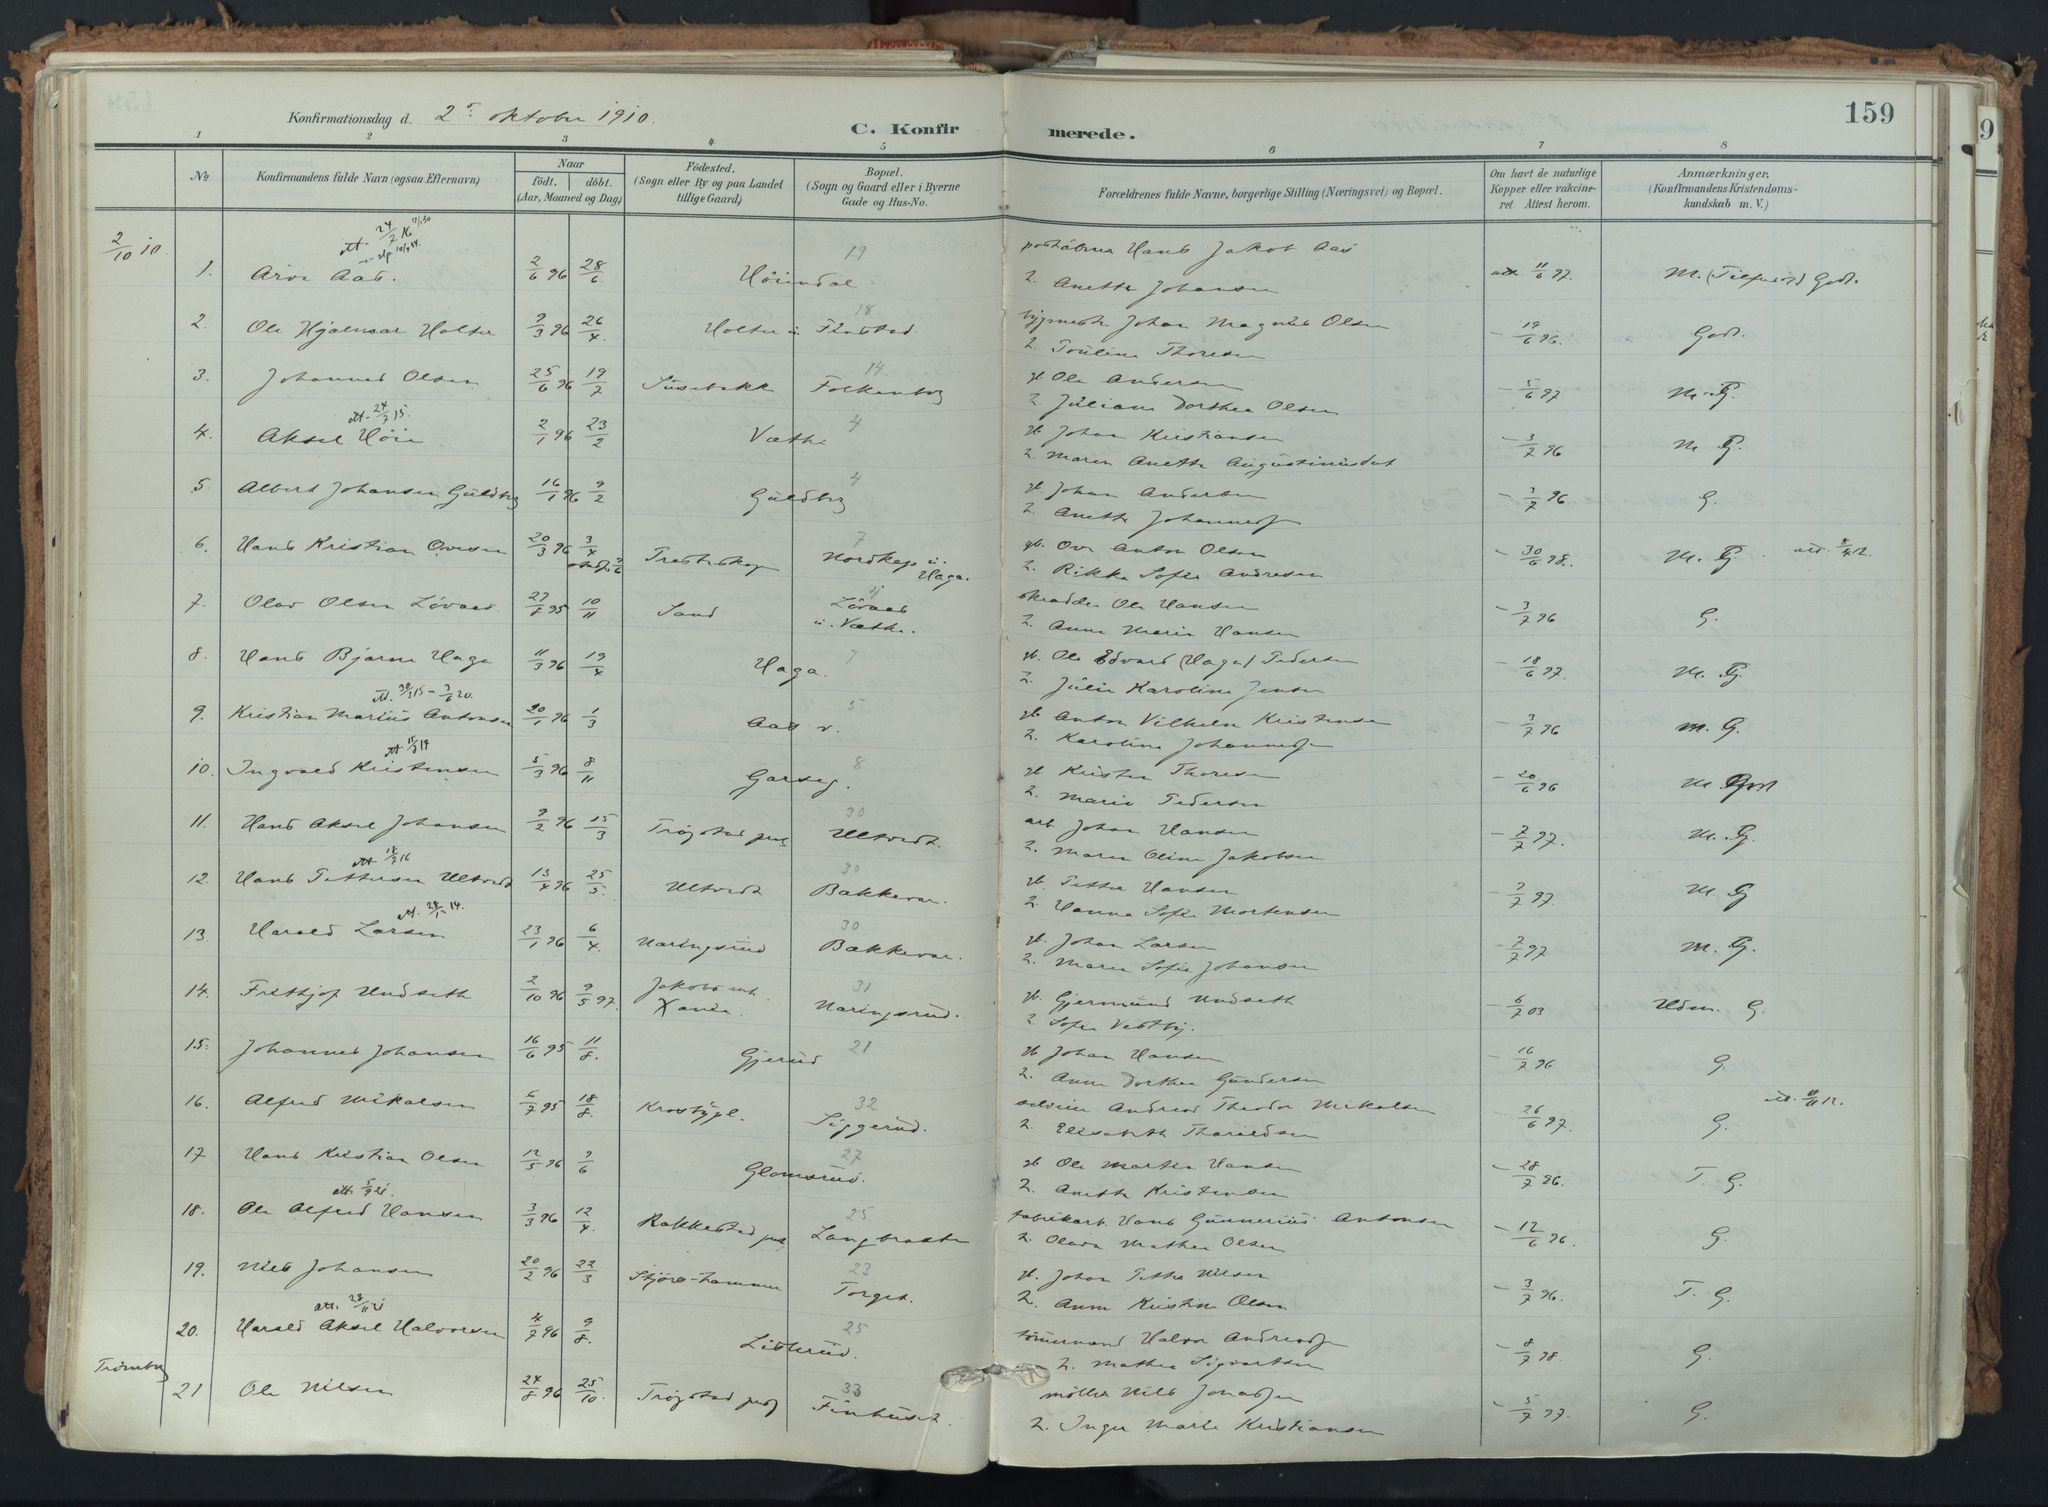 159
Konfirmationsdag d. 2 oktober 1910.
C. Konfirmerede.
1 2 3 4 5 6 7 8
No
Konfirmandens fulde Navn (ogsaa Efternavn)
Naar
födt. döbt.
(Aar, Maaned og Dag)
Födested.
(Sogn eller By og paa Landet
tillige Gaard)
Bopæl.
(Sogn og Gaard eller i Byerne
Gade og Hus-No.
Forældrenes fulde Navne, borgerlige Stilling (Næringsvei) og Bopæl.
Om havt de naturlige
Kopper eller vakcine-
ret Attest herom.
Anmærkninger,
(Konfirmandens Kristendoms-
kundskab m. V.)
2/10 10
19
Hans Jakob Aas
1. Aas. 2/6 96 28/6 Höiendal 2. Anette Johansen 11/6 97. Godt.
18
2. Ole Hjalmar Holter 9/3 96 26/4 Holter Johan Magnus Olsen 19/6 96. Godt.
2. Thoresen
14
3. Johannes Olsen 25/6 96 19/7 Susebakke Folkenborg Ole Andersen 5/6 97 M. G.
2. Juliane Dorthea Olsen
att. 24/7 15.
4
4. Aksel Höie 2/1 96 23/2 Johan Kristiansen 3/7 96 M G.
2. Maren Anette Augustinusdat
4
5. Albert Johansen Guldbg 16/1 96 9/2 Guldbg Johan Andersen 3/7 96 G.
2. Anette
7
6. Hans Kristian Ovesen 20/3 96 3/4 Nordkap u. Haga. Ove Anton Olsen 30/6 98. M. G
2. Rikka Sofie Andresen
4
7. Olav Olsen Lövaas. 27/8 95 10/11 Sand Lövaas Ole Hansen 3/7 96 G.
2. Anne Marie Hansen
7
8. Hans Bjarne Haga 11/3 96 19/4 Haga. Ole Edvard (Haga) Pedersen 18/6 97. M. G.
2. Julie Karoline Jensen
5
9. Kristian Marius Antonsen 20/1 96 1/3 Aas v. Anton Vilhelm Kristensen 3/7 96 M. G.
2. Karoline
8
10. Ingvald Kristensen 5/3 96 8/11 Garseg. Kristen Thoresen 20/6 96 M. Godt
2. Marie Pedersen
30
11. Hans Aksel Johansen 9/2 96 15/3 Trögstad Ultvedt. arb. Johan Hansen 7/7 97. M. G.
2. Maren Oline Jakobsen
att. 18/7 16
30
12. Hans Pettersen Ultvedt 13/4 96 25/5. Ultvedt Bakkevar. Petter Hansen 7/7 97. M. G
2. Hanna Sofie Mortensen
30
13. Harald Larsen 23/1 96 6/4. Naringsrud Bakkevar. Johan Larsen 7/7 97 M. G.
2. Maren Sofie Johansen
31
14. Frithjof Undseth 2/10 96 9/5 97. Naringsrud. Gjermund Undseth 6/7 03 Udm. G.
2. Sofie Vestby.
21
15. Johannes Johansen 16/6 95 11/8. Gjerud Johan Hansen 16/7 96 G.
2. Anne Dorthea Gundersen
32
16. Alfred Mikalsen 6/7 95 18/8. Siggerud. Andreas Theodor Mikalsen 26/6 97. G.
2. Elisabeth Tharaldsen
27
17 Hans Kristian Olsen 12/5 96 7/6 Glomsrud. Ole Martin Hansen 28/7 96. T. G.
2. Anette Kristensen
25
18. Ole Alfred Hansen 3/3 96 12/4. Rakkestad Langbraate fabrikarb. Hans Gunnerius Antonsen 12/6 96. G
2. Olava Mathea Olsen
23
19. Nils Johansen 20/2 96 22/3 Torget. Johan Petter Nilsen 3/7 96. T. G.
2. Anne Kristine Olsen
25
20. Harald Aksel Halvorsen 4/7 96 9/8. Listerud. Halvor 8/7 98. G
2. Mathea Sigvartsen
Trömborg
33
21 Ole Nilsen 24/8 96 25/10. Trögstad Finhuset. möller Nils 5/7 97. G.
2. Inger Marie Kristiansen